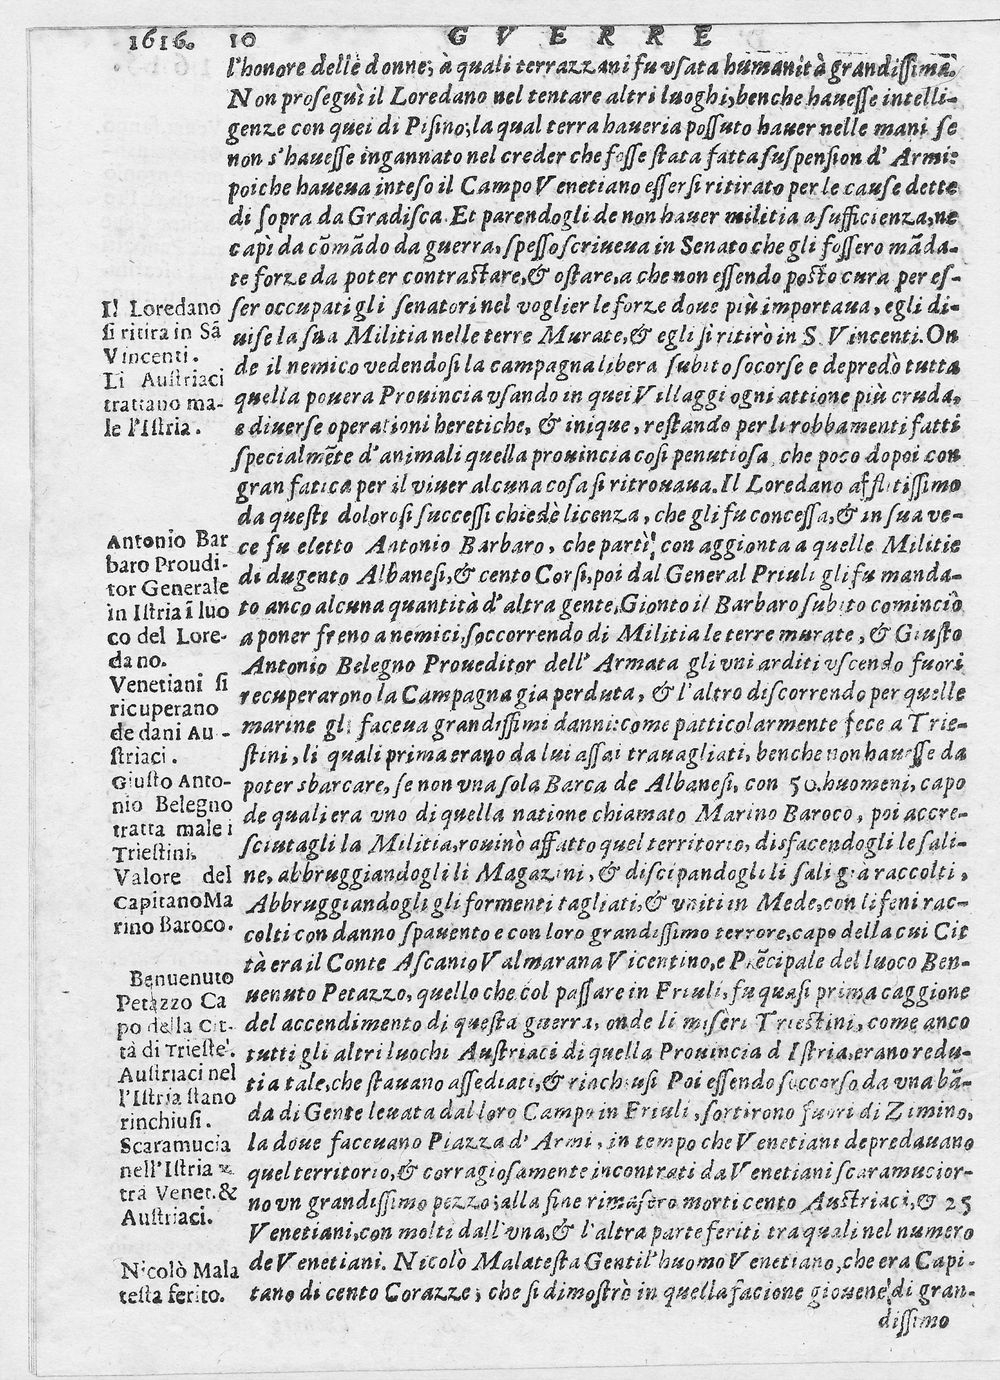 1616. 10 GVERRE
l'honore delle donne; à quali terrazzani fu vsata humanità grandissima.
Non proseguì il Loredano nel tentare altri luoghi, benche hauesse intelli-
genze con quei di Pisino; la qual terra haueria possuto hauer nelle mani se
non s'hauesse ingannato nel creder che fosse stata fatta suspension d'Armi:
poiche haueua inteso il Campo Venetiano essersi ritirato per le cause dette
di sopra da Gradisca. Et parendogli de non hauer militia a sufficienza, ne
capì da cōmādo da guerra, spesso scriueua in Senato che gli fossero māda-
te forze da poter contrastare, & ostare, a che non essendo posto cura per es-
ser occupati gli senatori nel voglier le forze doue più importaua, egli di-
uise la sua Militia nelle terre Murate, & egli si ritirò in S. Vincenti. On
de il nemico vedendosi la campagna libera subito socorse e depredò tutta
quella pouera Prouincia vsando in quei Villaggi ogni attione più cruda,
e diuerse operationi heretiche, & inique, restando per li robbamenti fatti
specialmēte d'animali quella prouincia cosi penutiosa, che poco dopoi con
gran fatica per il viuer alcuna cosa si ritrouaua. Il Loredano afflitissimo
da questi dolorosi successi chiedè licenza, che gli fu concessa, & in sua ve-
ce fu eletto Antonio Barbaro, che partì con aggionta a quelle Militie
di dugento Albanesi, & cento Corsi, poi dal General Priuli gli fu manda-
to anco alcuna quantità d'altra gente, Gionto il Barbaro subito cominciò
a poner freno a nemici, soccorrendo di Militia le terre murate, & Giusto
Antonio Belegno Proueditor dell'Armata gli vni arditi vscendo fuori
recuperarono la Campagna gia perduta, & l'altro discorrendo per quelle
marine gli faceua grandissimi danni: come patticolarmente fece a Trie-
stini, li quali prima erano da lui assai trauagliati, benche non hauesse da
poter sbarcare, se non vna sola Barca de Albanesi, con 50. huomeni, capo
de quali era vno di quella natione chiamato Marino Baroco, poi accre-
sciutagli la Militia, rouinò affatto quel territorio, disfacendogli le sali-
ne, abbruggiandogli li Magazini, & discipandogli li sali gia raccolti,
Abbruggiandogli gli formenti tagliati, & vniti in Mede, con li feni rac-
colti con danno spauento e con loro grandissimo terrore, capo della cui Cit
tà era il Conte Ascanio Valmarana Vicentino, e Prēcipale del luoco Ben-
uenuto Petazzo, quello che col passare in Friuli, fu quasi prima caggione
del accendimento di questa guerra, onde li miseri Triestini, come anco
tutti gli altri luochi Austriaci di quella Prouincia d'Istria, erano redu-
tia tale, che stauano assediati, & riachiusi Poi essendo soccorso da vna bā-
da di Gente leuata dal loro Campo in Friuli, sortirono fuori di Zimino,
la doue faceuano Piazza d'Armi, in tempo che Venetiani depredauano
quel territorio, & corragiosamente incontrati da Venetiani scaramucior-
no vn grandissimo pezzo; alla fine rimasero morti cento Austriaci, & 25
Venetiani, con molti dall'vna, & l'altra parte feriti tra quali nel numero
de Venetiani. Nicolò Malatesta Gentil'huomo Venetiano, che era Capi-
tano di cento Corazze; che si dimostrò in quella facione giouene di gran-
dissimo
Il Loredano
si ritira in Sā
Vincenti.
Li Austriaci
trattano ma-
le l'Istria.
Antonio Bar
baro Proudi-
tor Generale
in Istria ī luo
co del Lore-
dano.
Venetiani si
ricuperano
de dani Au-
striaci.
Giusto Anto-
nio Belegno
tratta male i
Triestini.
Valore del
Capitano Ma
rino Baroco.
Benuenuto
Petazzo Ca
po della Cit-
tà di Trieste.
Austriaci nel
l'Istria stano
rinchiusi.
Scaramucia
nell'Istria
trà Venet. &
Austriaci.
Nicolò Mala
testa ferito.